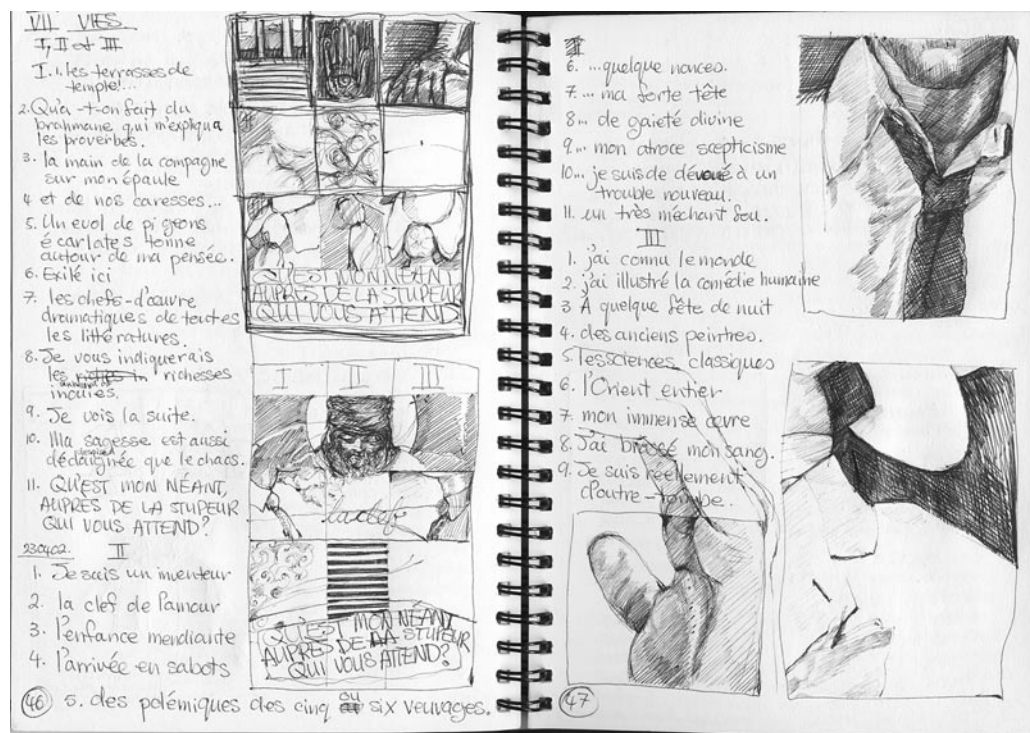 VII VIES
I, II et III
I. 1. les terrasses de
temple!...
2. Qu'a-t-on fait du
brahmane qui m'expliqua
les proverbes.
3. la main de la compagne
sur mon épaule
4 et de nos caresses...
5. Un evol de pigeons
écarlates tonne
autour de ma pensée.
6. Exilé ici
7. les chefs-d'œuvre
dramatiques de toutes
les littératures.
8. Je vous indiquerais
les richesses
inouïes.
9. Je vois la suite.
10. Ma sagesse est aussi
dédaignée que le chaos.
11. QU'EST MON NÉANT,
AUPRÈS DE LA STUPEUR
QUI VOUS ATTEND?
230402. II
1. Je suis un inventeur
2. la clef de l'amour
3. l'enfance mendiante
4. l'arrivée en sabots
46 5. des polémiques des cinq ou six veuvages.
QU'EST MON NÉANT
AUPRES DE LA STUPEUR
QUI VOUS ATTEND
I II III
QU'EST MON NÉANT
AUPRES DE LA STUPEUR
QUI VOUS ATTEND?
II
6. ...quelque nonces.
7. ... ma forte tête
8... de gaieté divine
9... mon atroce scepticisme
10... je suis de dévoué à un
trouble nouveau.
11. un très méchant fou.
III
1. j'ai connu le monde
2. j'ai illustré la comédie humaine
3 À quelque fête de nuit
4. des anciens peintres.
5. les sciences classiques
6. l'Orient entier
7. mon immense œvre
8. J'ai brassé mon sang.
9. Je suis réellement
d'outre-tombe.
47